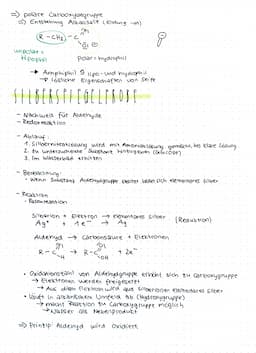 ⇒ polare Carboxylgruppe
⇒ Entstehung Alkansalz (Endung -at)
R - CH₂ - C
unpolar =
lipophil
polar = hydrophil
→ Amphiphil → lipo- und hydrophil
→ Eigenschaften von Seife
SILBERSPIEGELPROBE
- Nachweis für Aldehyde
- Redoxreaktion
- Ablauf:
1. Silbernitratlösung wird mit Ammoniaklösung gemischt, bis klare Lösung
2. Zu untersuchende Substanz hinzugeben (Glucose)
3. Im Wasserbad erhitzen
- Beobachtung:
- wenn Substanz Aldehydgruppe besitzt bildet sich elementares Silber
- Reaktion
- Redoxreaktion
Silberion + Elektron → elementares Silber
Ag⁺ + 1e⁻ → Ag (Reduktion)
Aldehyd → Carbonsäure + Elektronen
R - C → R - C + 2e⁻
H OH
• Oxidationszahl von Aldehydgruppe erhöht sich zu Carboxygruppe
→ Elektronen werden freigesetzt
→ Aus den Elektronen wird aus Silberionen elementares Silber
• läuft in alkalischem Umfeld ab (Hydroxygruppe)
→ macht Reaktion zu Carboxygruppe möglich
→ Wasser als Nebenprodukt
⇒ Prinzip: Aldehyd wird oxidiert